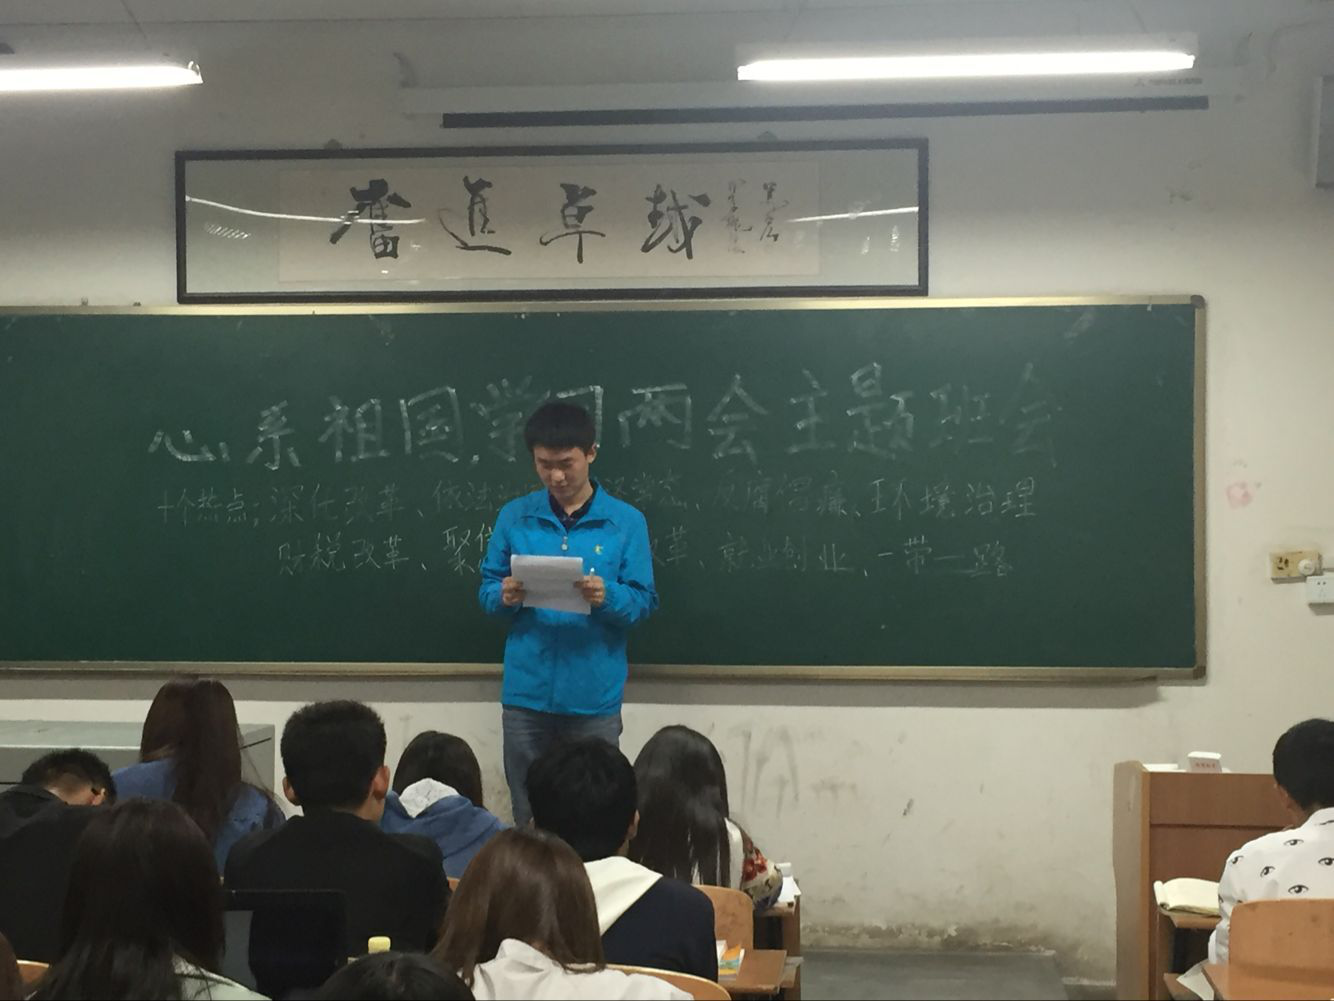 奮進卓越
心系祖国,学习两会主题班会
十个热点:深化改革、依法 反腐倡廉、环境治理
财税改革、聚焦 改革、就业创业、一带一路